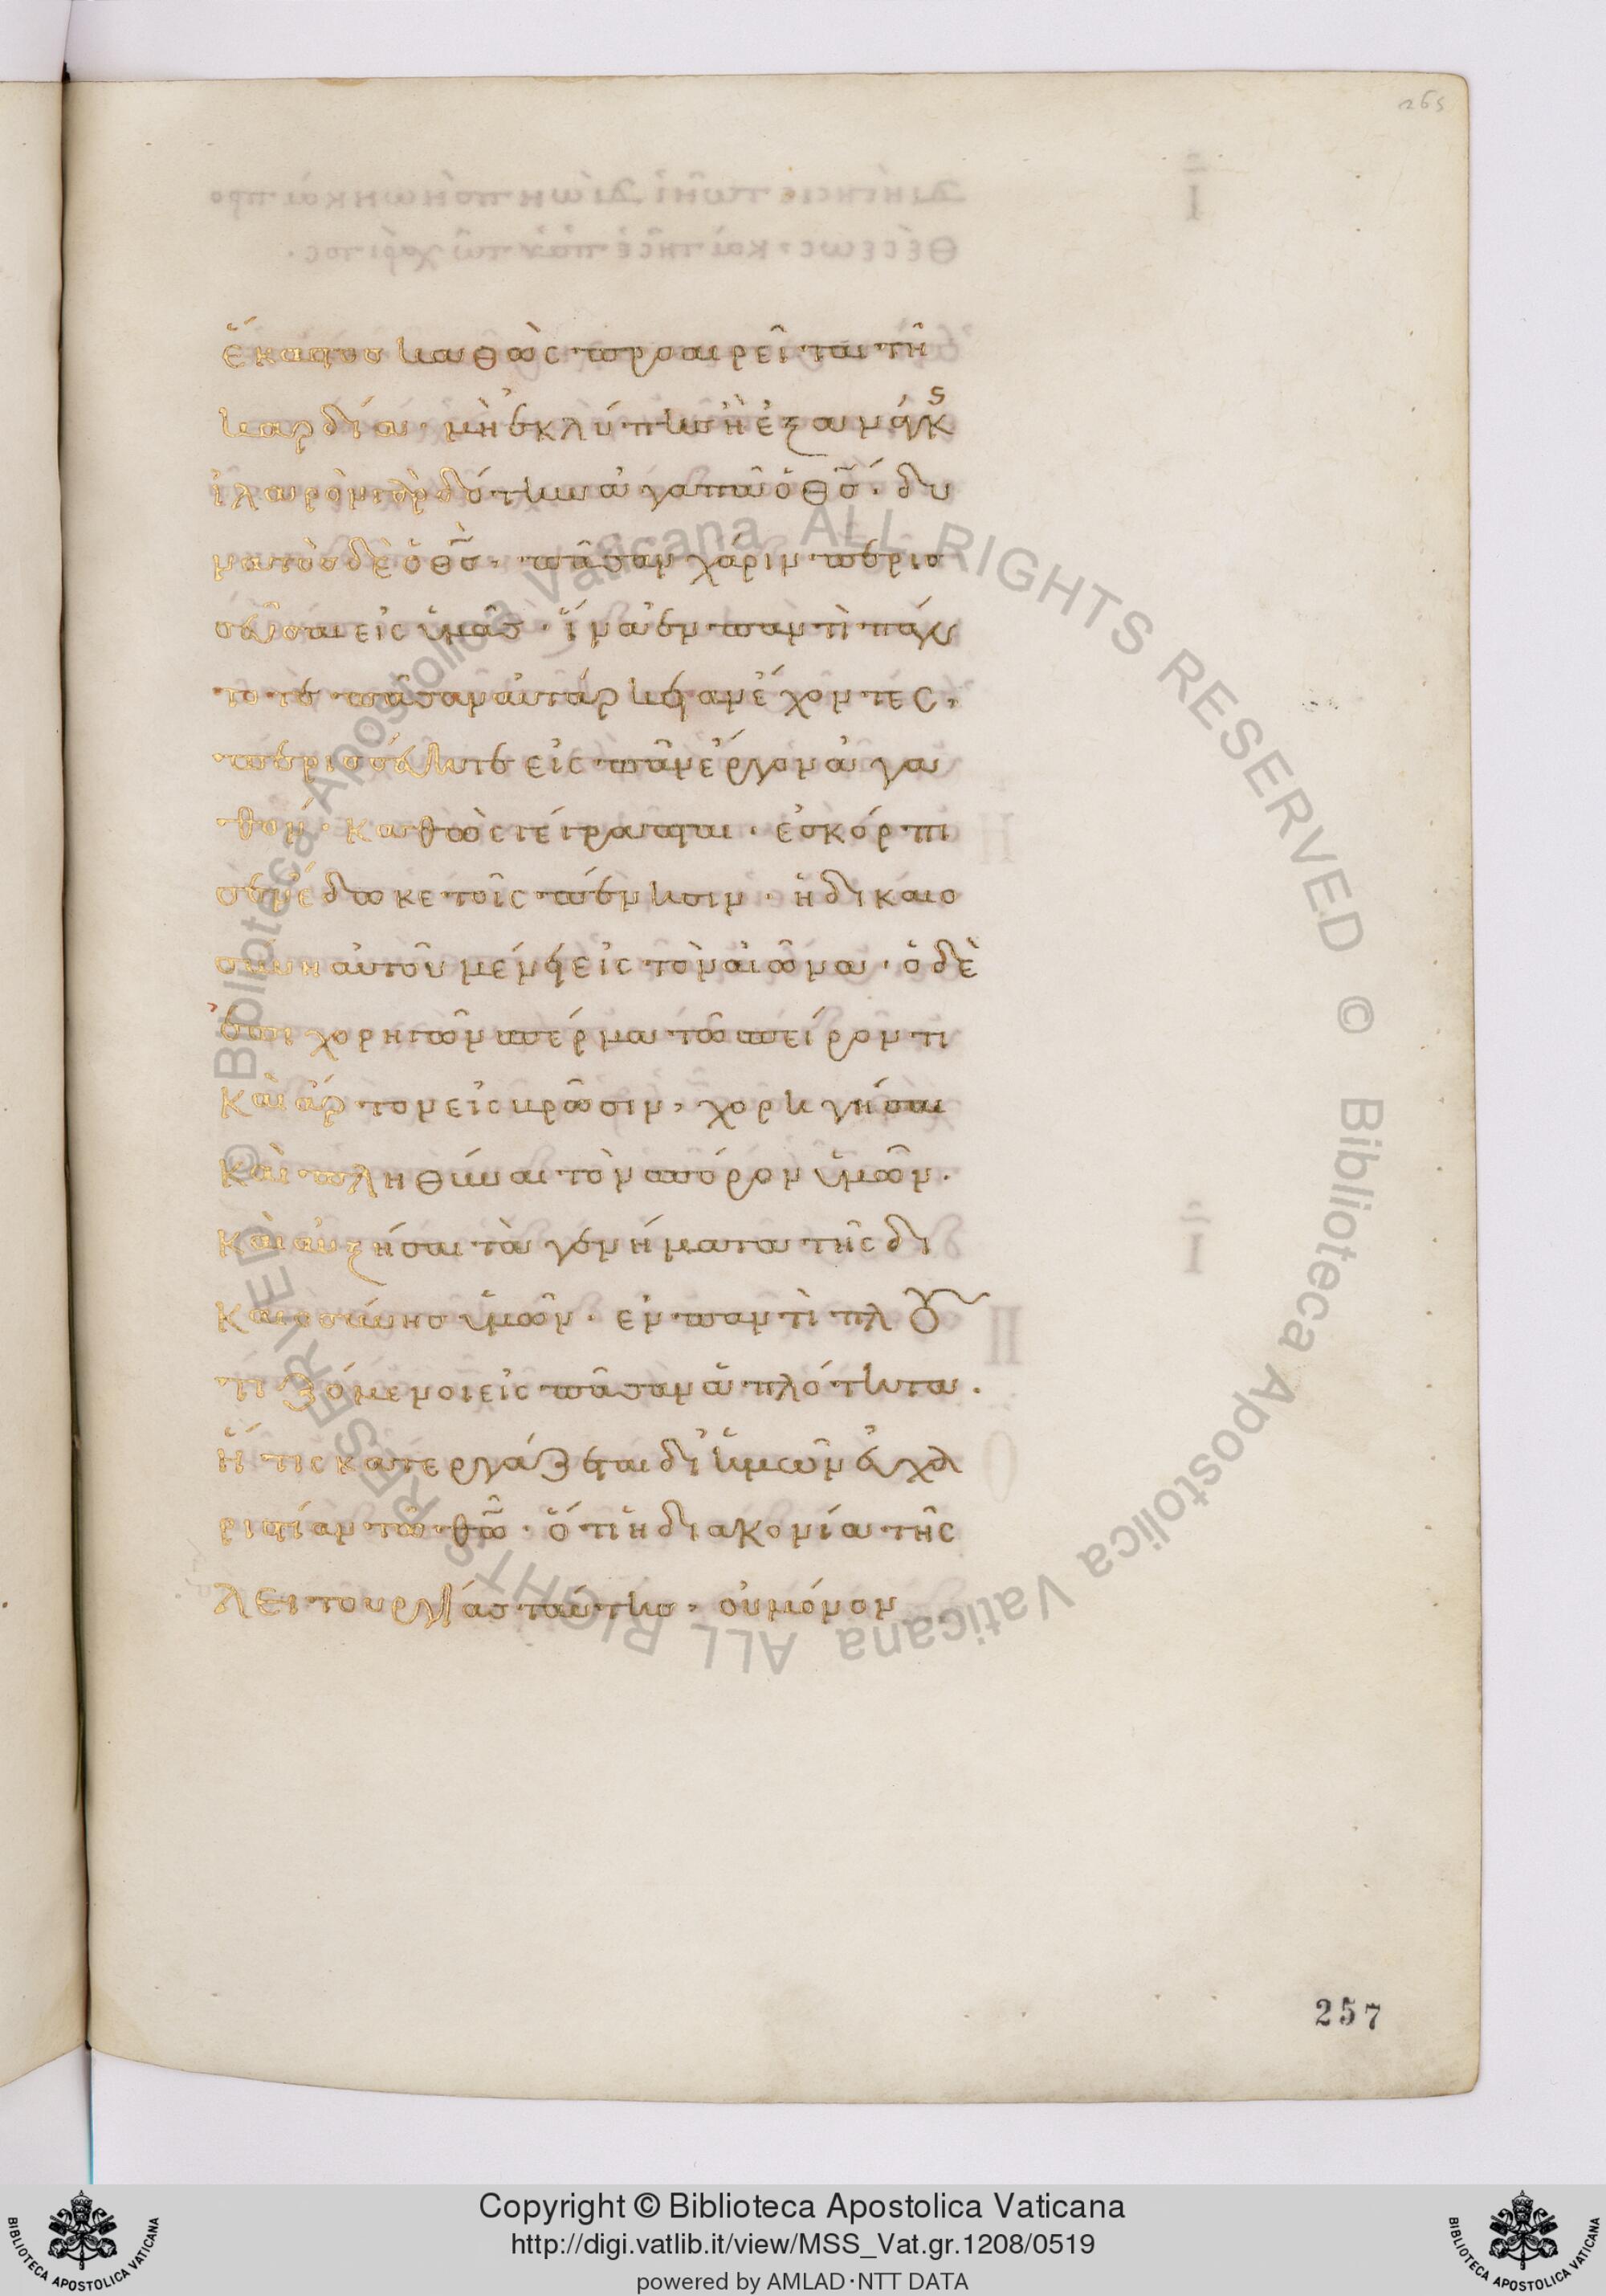 265
ἕκαστος καθὼς προαιρεῖται τῆ
καρδία· μὴ ἐκ λύπης ἢ ἐξ ἀνάγκς
ἱλαρὸν γὰρ δότην ἀγαπᾶ ὁ θς· δυ
νατὸς δὲ ὁ θς· πᾶσαν χάριν περισ
σεῦσαι εἰς ὑμᾶς· ἵνα ἐν παντὶ πάν
τοτε πᾶσαν αὐτάρκειαν ἔχοντες,
περισσεύητε εἰς πᾶν ἔργον ἀγα
θόν· καθὼς γέγραπται· ἐσκόρπι
σεν ἔδωκε τοῖς πένησιν· ἡ δικαιο
σύνη αὐτοῦ μένει εἰς τὸν αἰῶνα· ὁ δὲ
ἐπιχορηγῶν σπέρμα τῶ σπείροντι
καὶ ἄρτον εἰς βρῶσιν, χορηγήσαι
καὶ πληθύναι τὸν σπόρον ὑμῶν·
καὶ αὐξήσαι τὰ γενήματα τῆς δι
καιοσύνης ὑμῶν· ἐν παντὶ πλου
τιζόμενοι εἰς πᾶσαν ἁπλότητα·
ἥτις κατεργάζεται δι' ἡμῶν εὐχα
ριστίαν τῶ θῶ· ὅτι ἡ διακονία τῆς
λειτουργίας ταύτης, οὐ μόνον
257
© Biblioteca Apostolica Vaticana ALL RIGHTS RESERVED
© Biblioteca Apostolica Vaticana ALL RIGHTS RESERVED
BIBLIOTECA APOSTOLICA VATICANA
Copyright © Biblioteca Apostolica Vaticana
http://digi.vatlib.it/view/MSS_Vat.gr.1208/0519
powered by AMLAD·NTT DATA
BIBLIOTECA APOSTOLICA VATICANA